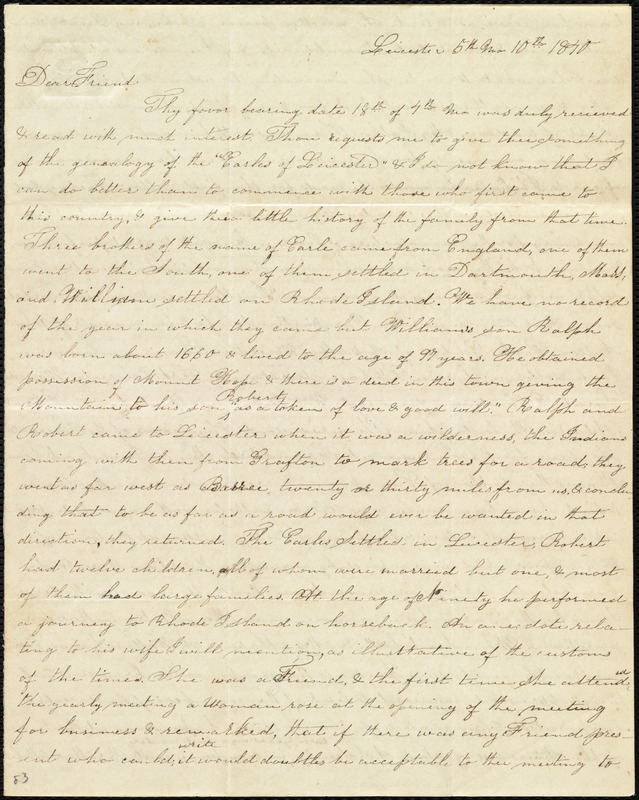 Leicester 5th Mo 10th 1840
Dear Friend
Thy favor bearing date 18th of 4th Mo was duly recieved
& read with much interest. Thou requests me to give thee something
of the genealogy of the "Earles of Leicester" & I do not know that I
can do better than to commence with those who first came to
this country, & give thee a little history of the family from that time.
Three brothers of the name of Earle came from England, one of them
went to the South, one of them settled in Dartmouth, Mass,
and William settled on Rhode Island. We have no record
of the year in which they came but William's son Ralph
was born about 1660 & lived to the age of 97 years. He obtained
possession of Mount Hope & there is a deed in this town giving the
Mountain to his son Robert "as a token of love & good will." Ralph and
Robert came to Leicester when it was a wilderness, the Indians
coming with them from Grafton to mark trees for a road; they
went as far west as Barre, twenty or thirty miles from us, & conclu
ding that to be as far as a road would ever be wanted in that
direction, they returned. The Earles settled in Leicester, Robert
had twelve children, all of whom were married but one, & most
of them had large families. At the age of Ninety he performed
a journey to Rhode Island on horseback. An anecdote rela-
ting to his wife I will mention, as illustrative of the customs
of the times. She was a Friend, & the first time she attended
the yearly meeting a Woman rose at the opening of the meeting
for business & remarked, that if there was any Friend pres-
ent who could write it would doubtles be acceptable to the meeting to
53